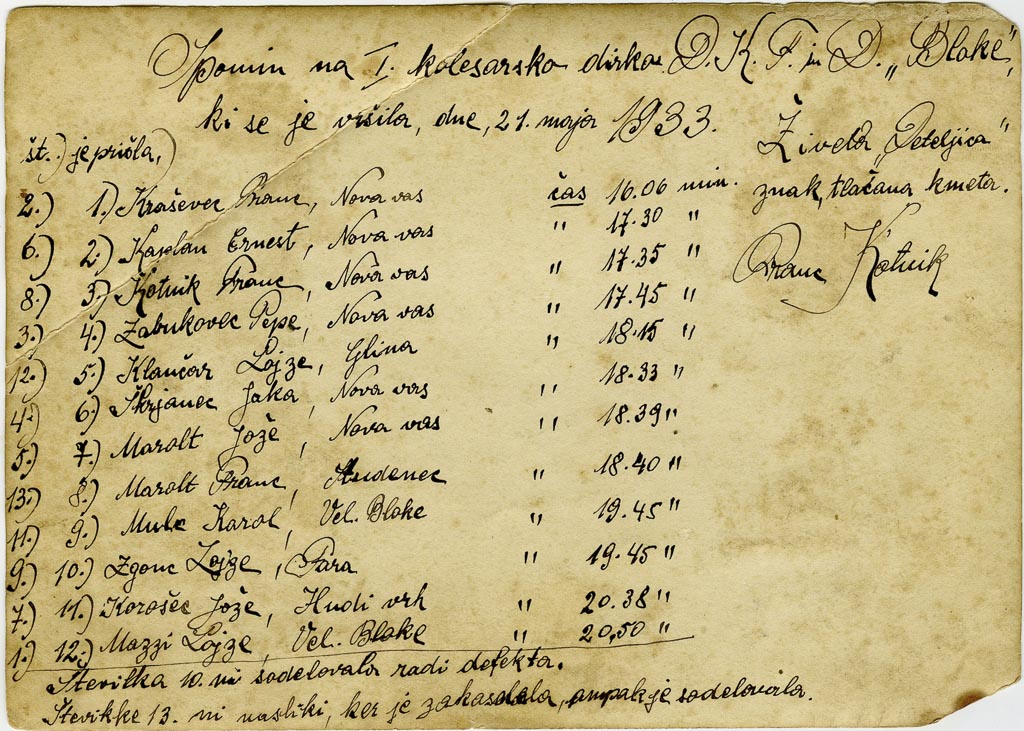 Spomin na I. kolesarsko dirko D. K. F. in D. „Bloke”,
ki se je vršila, dne, 21. maja 1933.
št.) je prišla,)
2.) 1.) Kraševec Franc, Nova vas čas 16.06 min.
6.) 2.) Kaplan Ernest, Nova vas " 17.30 "
8.) 3.) Kotnik Franc, Nova vas " 17.35 "
3.) 4.) Zabukovec Pepe, Nova vas " 17.45 "
12.) 5.) Klančar Lojze, Glina " 18.15 "
4.) 6.) Škrjanec Jaka, Nova vas " 18.33 "
5.) 7.) Marolt Jože, Nova vas " 18.39 "
13.) 8.) Marolt Franc, Studenec " 18.40 "
11.) 9.) Mulc Karol, Vel. Bloke " 19.45 "
9.) 10.) Zgonc Lojze, Fara " 19.45 "
7.) 11.) Korošec Jože, Hudi vrh " 20.38 "
1.) 12.) Mazzi Lojze, Vel. Bloke " 20,50 "
Številka 10. ni sodelovala radi defekta.
Števikke 13. ni nasliki, ker je zakasnela, ampak je sodelovala.
Živela „Deteljica”
znak, tlačana kmeta.
Franc Kotnik